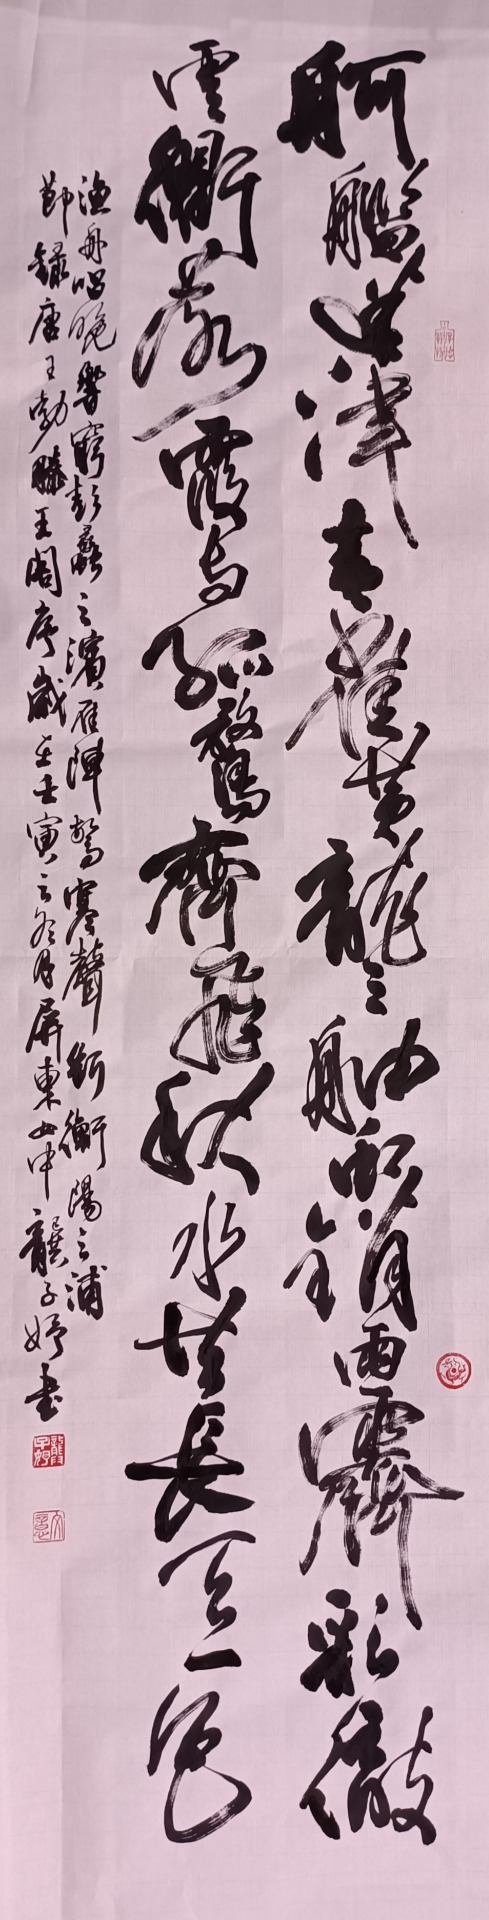 舸艦迷津青雀黃龍之舳虹銷雨霽彩徹
雲衢落霞与孤鶩齊飛秋水共長天一色
漁舟唱晚響窮彭蠡之濱雁陣驚寒聲斷衡陽之浦
節錄唐王勃滕王閣序歲在壬寅之冬月屏東女中龔子妤書
龔子妤